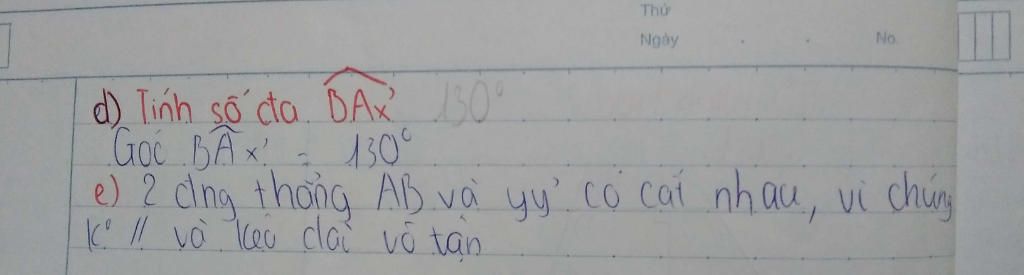 Thứ
Ngày . . No.
d) Tính số đta BAx' 130°
Góc BAx' = 130°
e) 2 đng thẳng AB và yy' có cắt nhau, vì chúng
k° // và kéo dài vô tận